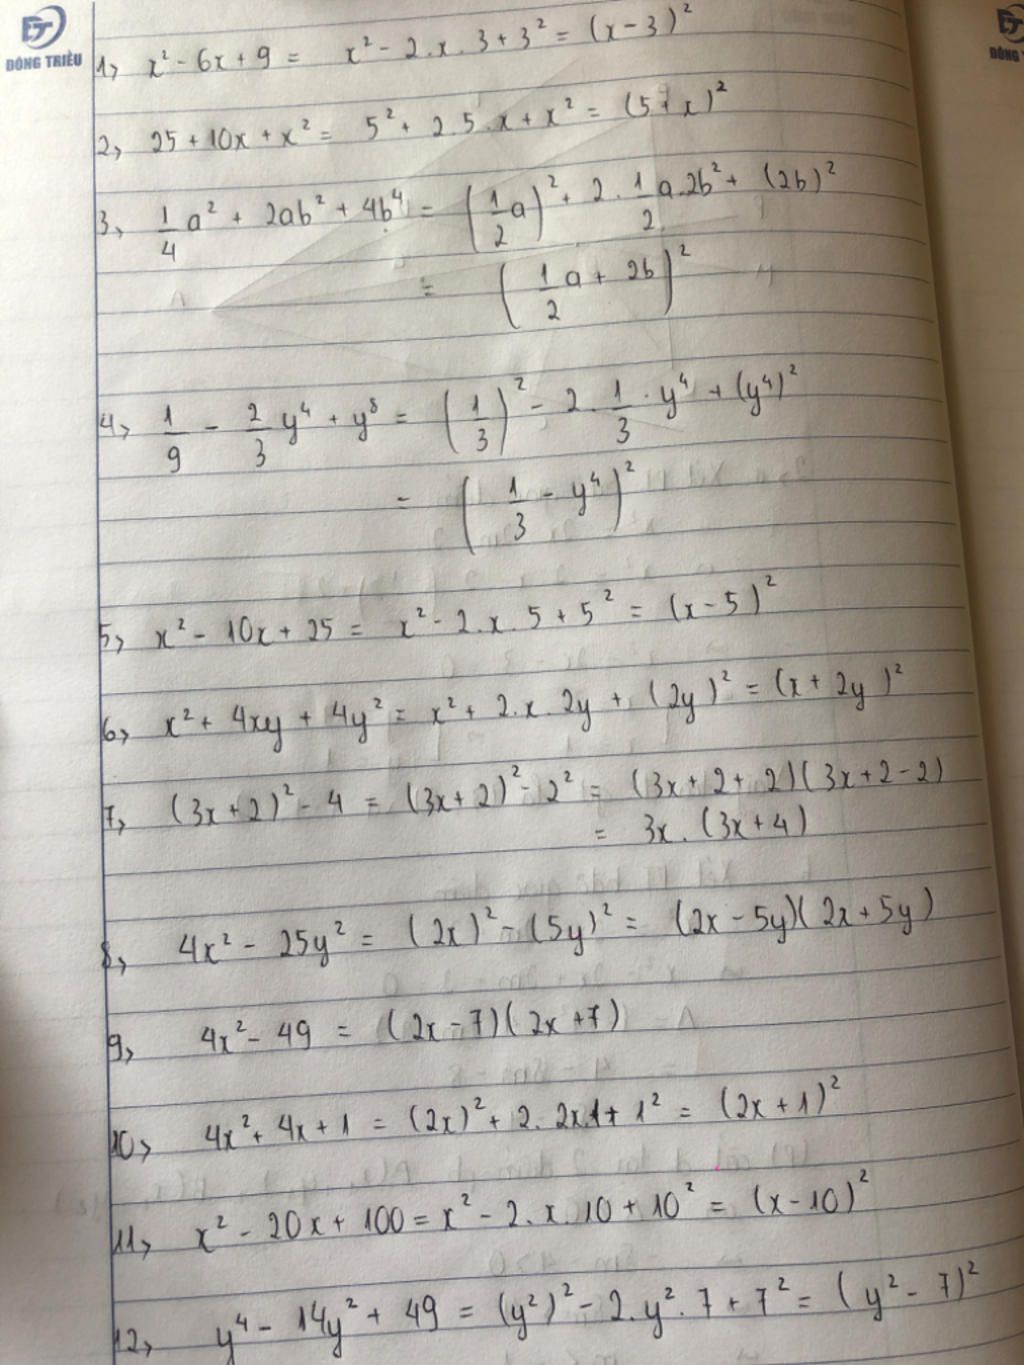 ĐT
ĐÔNG TRIỀU
ĐÔNG
1, x² - 6x + 9 = x² - 2.x.3 + 3² = (x - 3)²
2, 25 + 10x + x² = 5² + 2.5.x + x² = (5 + x)²
3, 1/4 a² + 2ab² + 4b⁴ = (1/2 a)² + 2.1/2 a.2b² + (2b)²
= (1/2 a + 2b)²
4, 1/9 - 2/3 y⁴ + y⁸ = (1/3)² - 2.1/3.y⁴ + (y⁴)²
= (1/3 - y⁴)²
5, x² - 10x + 25 = x² - 2.x.5 + 5² = (x - 5)²
6, x² + 4xy + 4y² = x² + 2.x.2y + (2y)² = (x + 2y)²
7, (3x + 2)² - 4 = (3x + 2)² - 2² = (3x + 2 + 2)(3x + 2 - 2)
= 3x.(3x + 4)
8, 4x² - 25y² = (2x)² - (5y)² = (2x - 5y)(2x + 5y)
9, 4x² - 49 = (2x - 7)(2x + 7)
10, 4x² + 4x + 1 = (2x)² + 2.2x.1 + 1² = (2x + 1)²
11, x² - 20x + 100 = x² - 2.x.10 + 10² = (x - 10)²
12, y⁴ - 14y² + 49 = (y²)² - 2.y².7 + 7² = (y² - 7)²